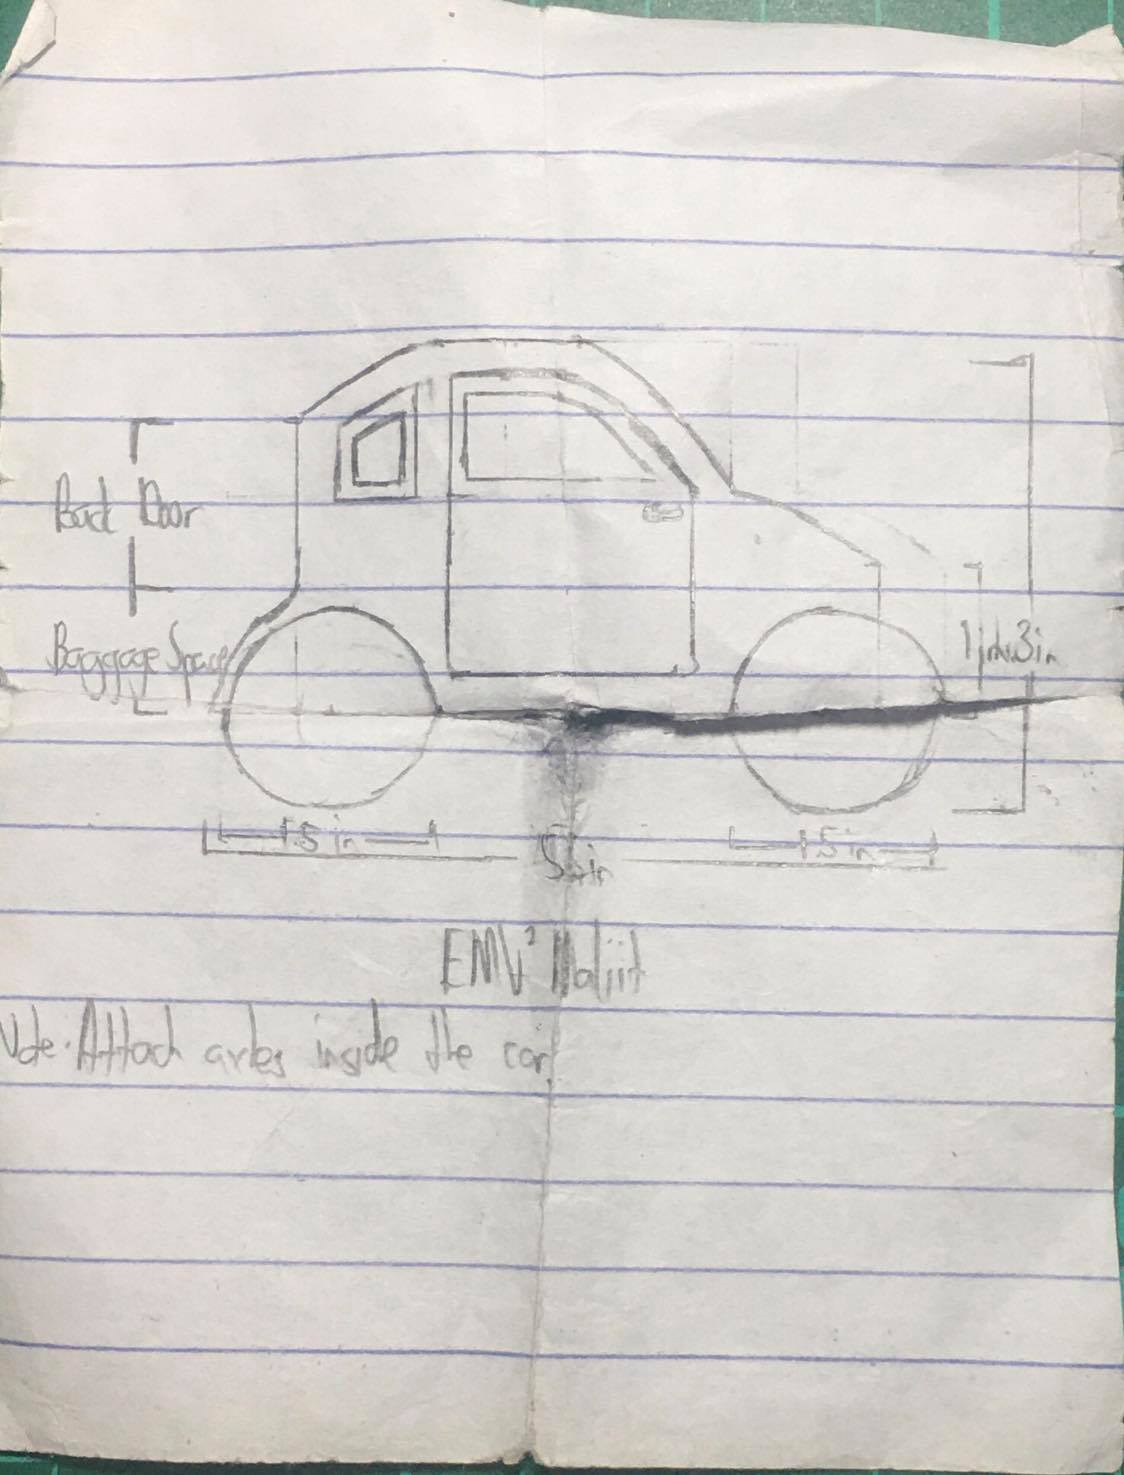 Back Door
Baggage Space
1in
3in
1.5 in
1.5 in
EMV² Maliit
Note: Attach axles inside the car